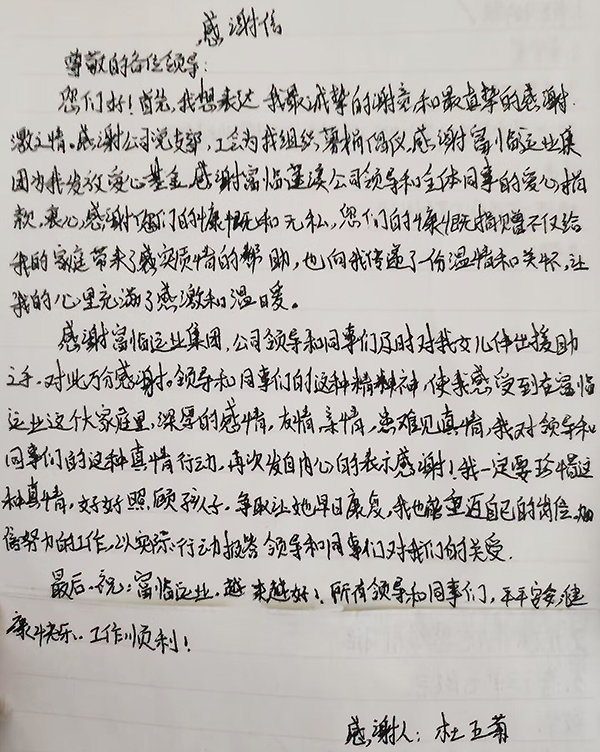 感谢信
尊敬的各位领导:
您们好!首先,我想表达我最诚挚的谢意和最真挚的感谢
激之情。感谢公司党支部,工会为我组织募捐倡仪,感谢富临运业集
团为我发放爱心基金,感谢富临蓬溪公司领导和全体同事的爱心捐
款,衷心感谢您们的慷慨和无私,您们的慷慨捐赠不仅给
我的家庭带来了感实质情的帮助,也向我传递了一份温情和关怀,让
我的心里充满了感激和温暖。
感谢富临运业集团,公司领导和同事们及时对我女儿伸出援助
之手,对此万分感谢。领导和同事们的这种精神,使我感受到在富临
运业这个大家庭里,深厚的感情,友情,亲情,患难见真情,我对领导和
同事们的这种真情行动,再次发自内心的表示感谢!我一定要珍惜这
种真情,好好照顾孩子,争取让她早日康复,我也能重返自己的岗位,加
倍努力的工作,以实际行动报答领导和同事们对我们的关爱.
最后,祝:富临运业,越来越好!所有领导和同事们,平平安安,健
康快乐,工作顺利!
感谢人:杜五菊